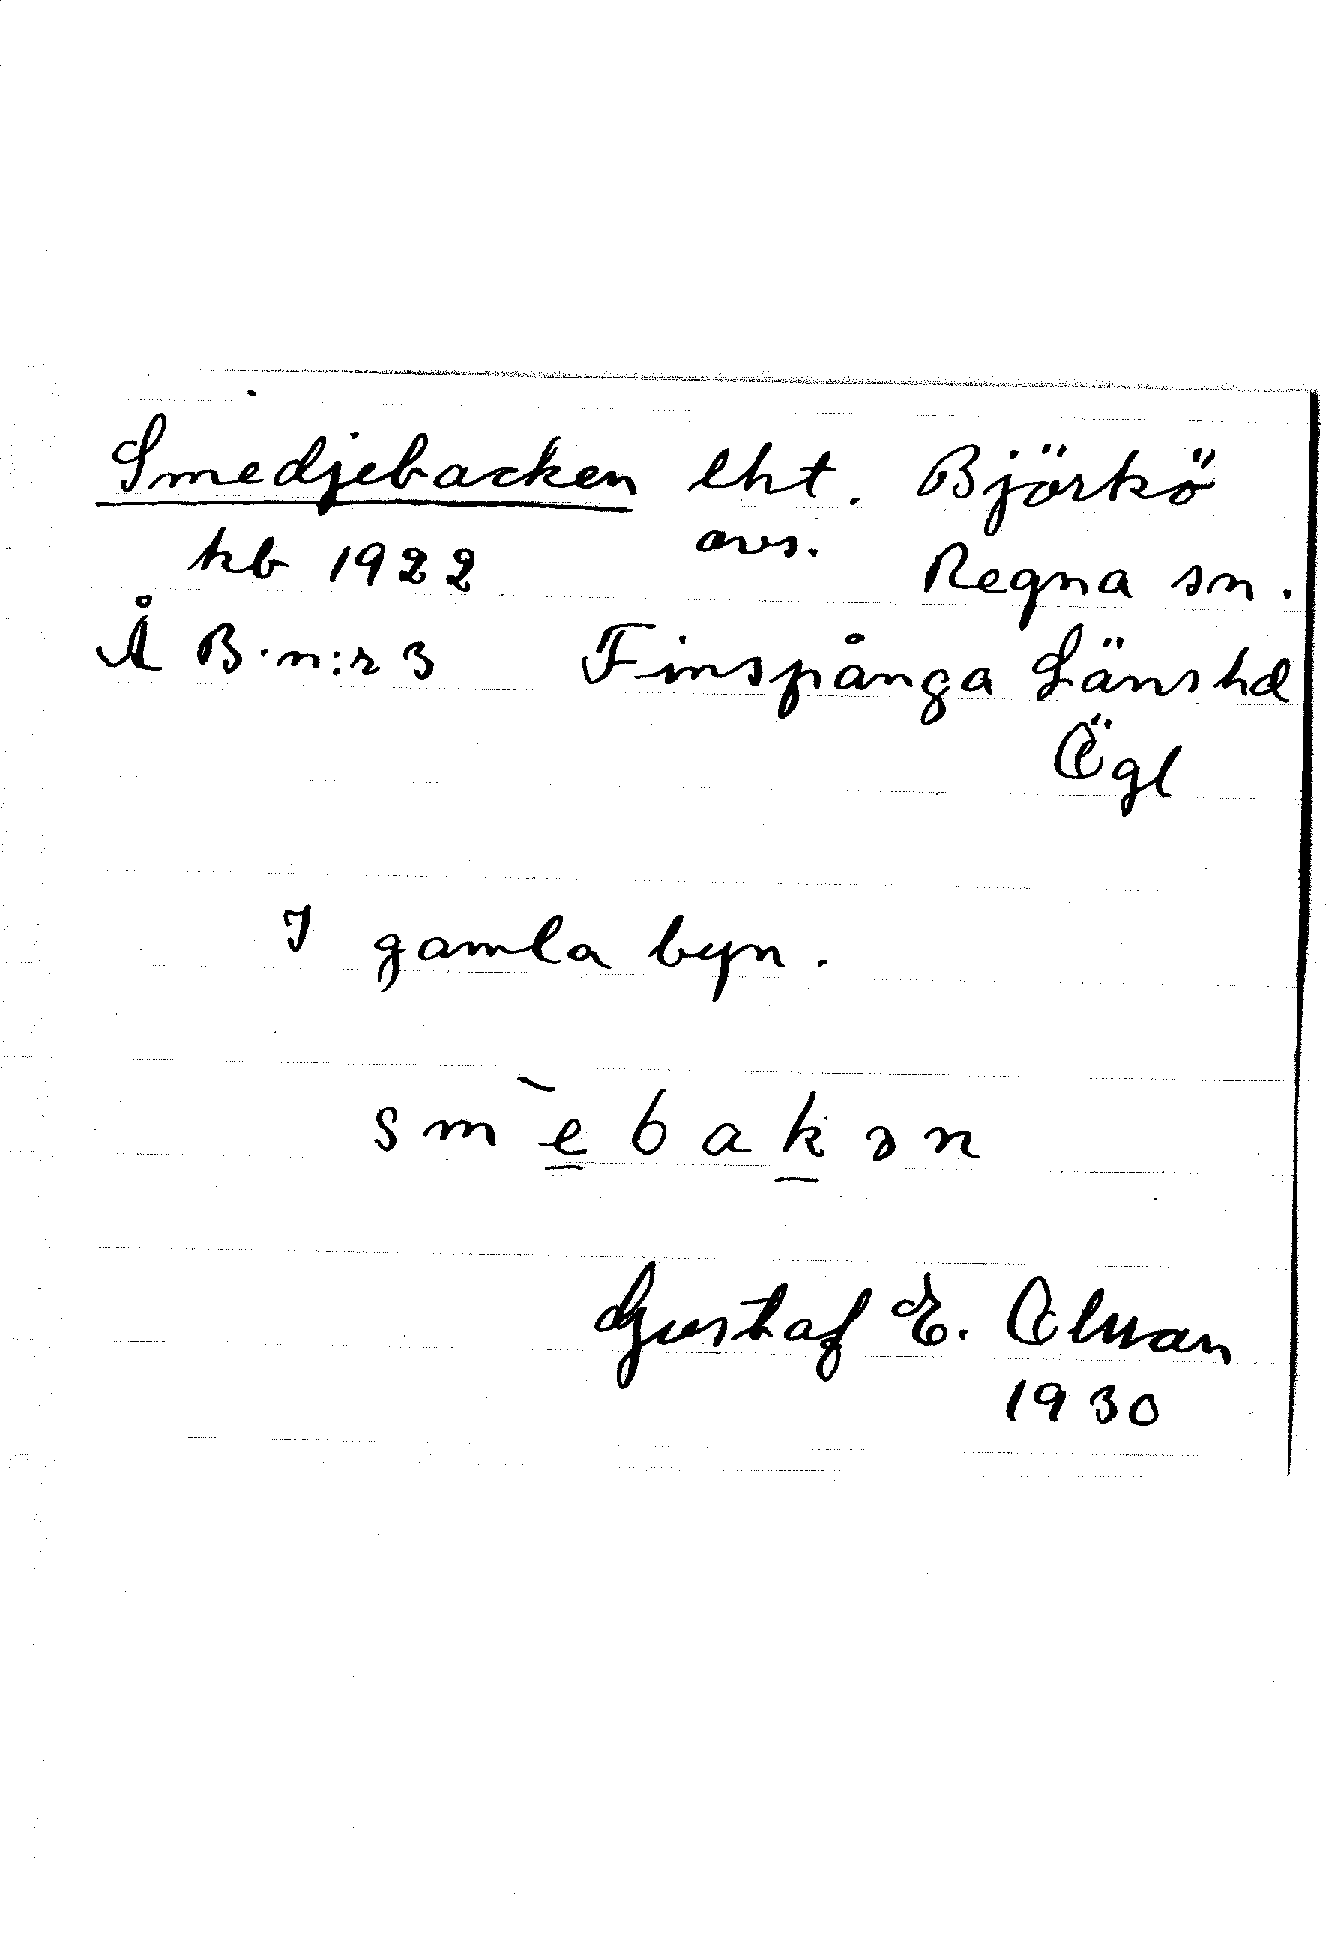 Smedjebacken lht. Björkö
kb 1922 avs. Regna sn.
Å B.n:r 3 Finspånga Länshd
Ögl
I gamla byn.
smèbakən
Gustaf E.
1930